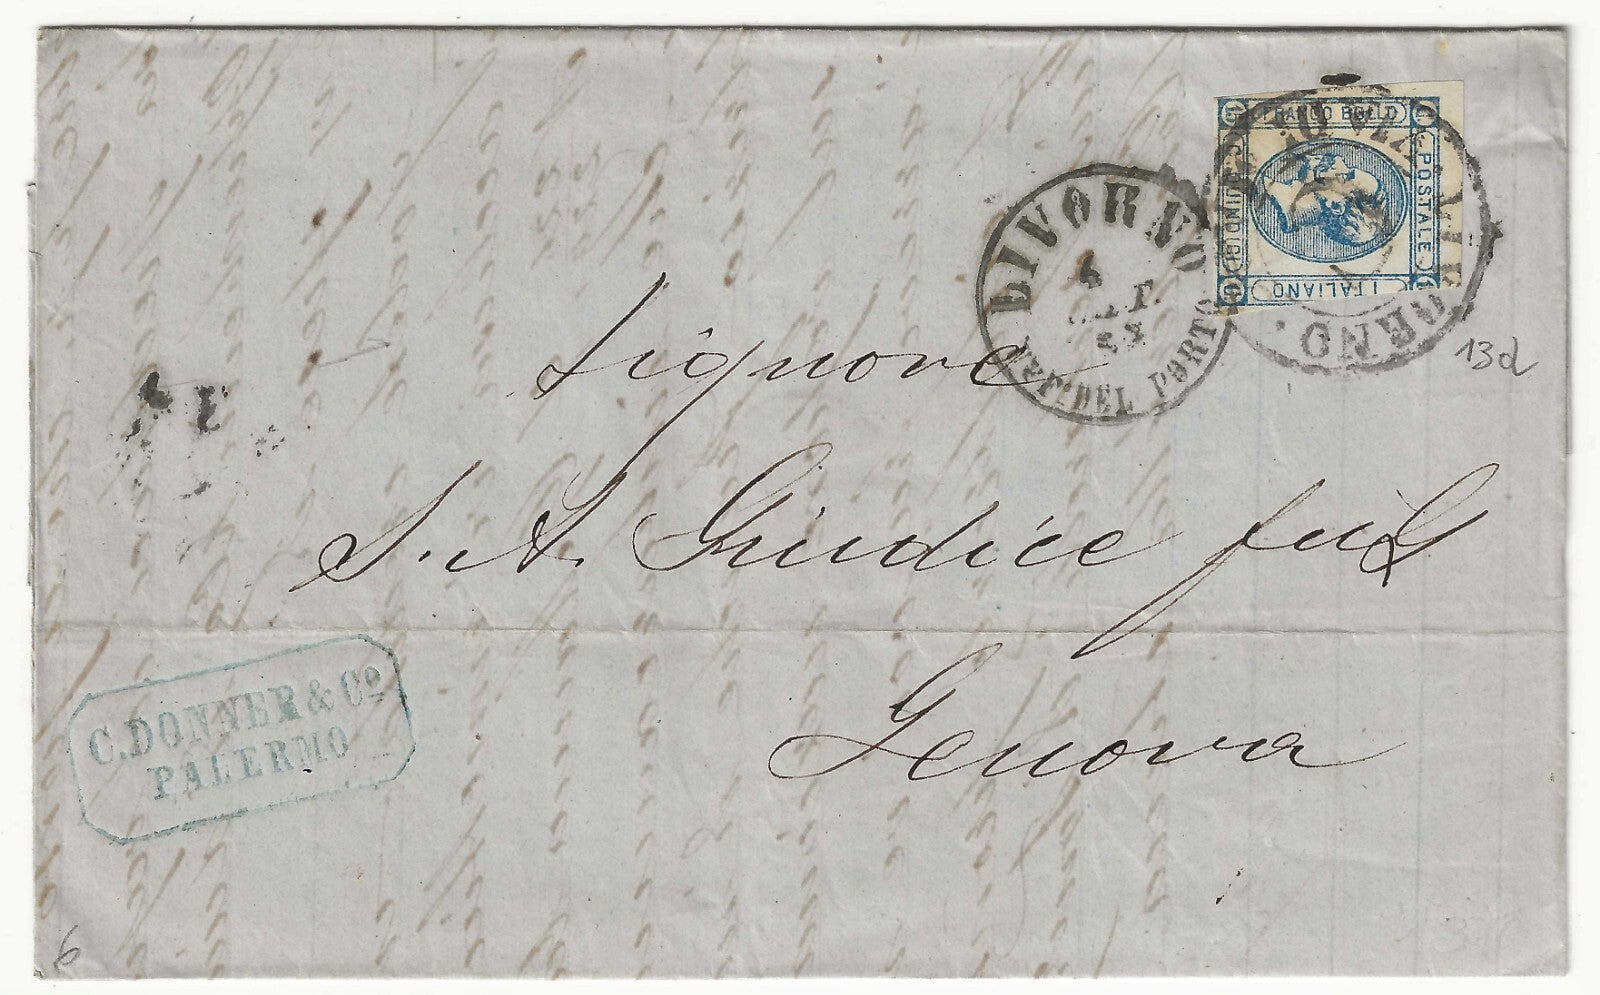 FRANCO BOLLO
POSTALE
ITALIANO
C. QUINDICI
LIVORNO
SET.
63
DEL PORTO
13d
Signore
S. A. Giudice fu G
Genova
C. DONNER & Cº
PALERMO
6